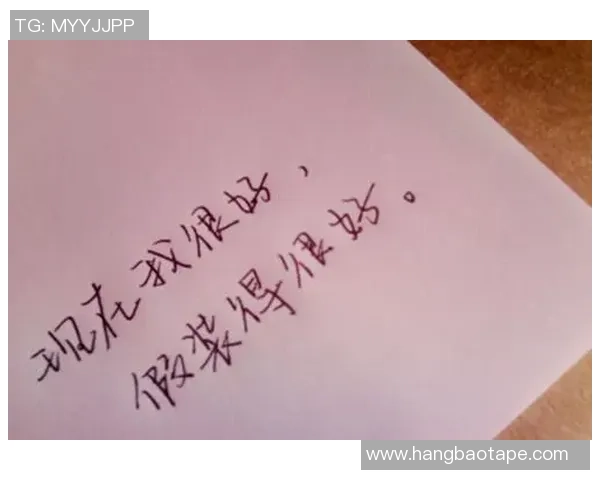 TG: MYYJJPP
现在我很好，
假装得很好。
www.hangbaotape.com